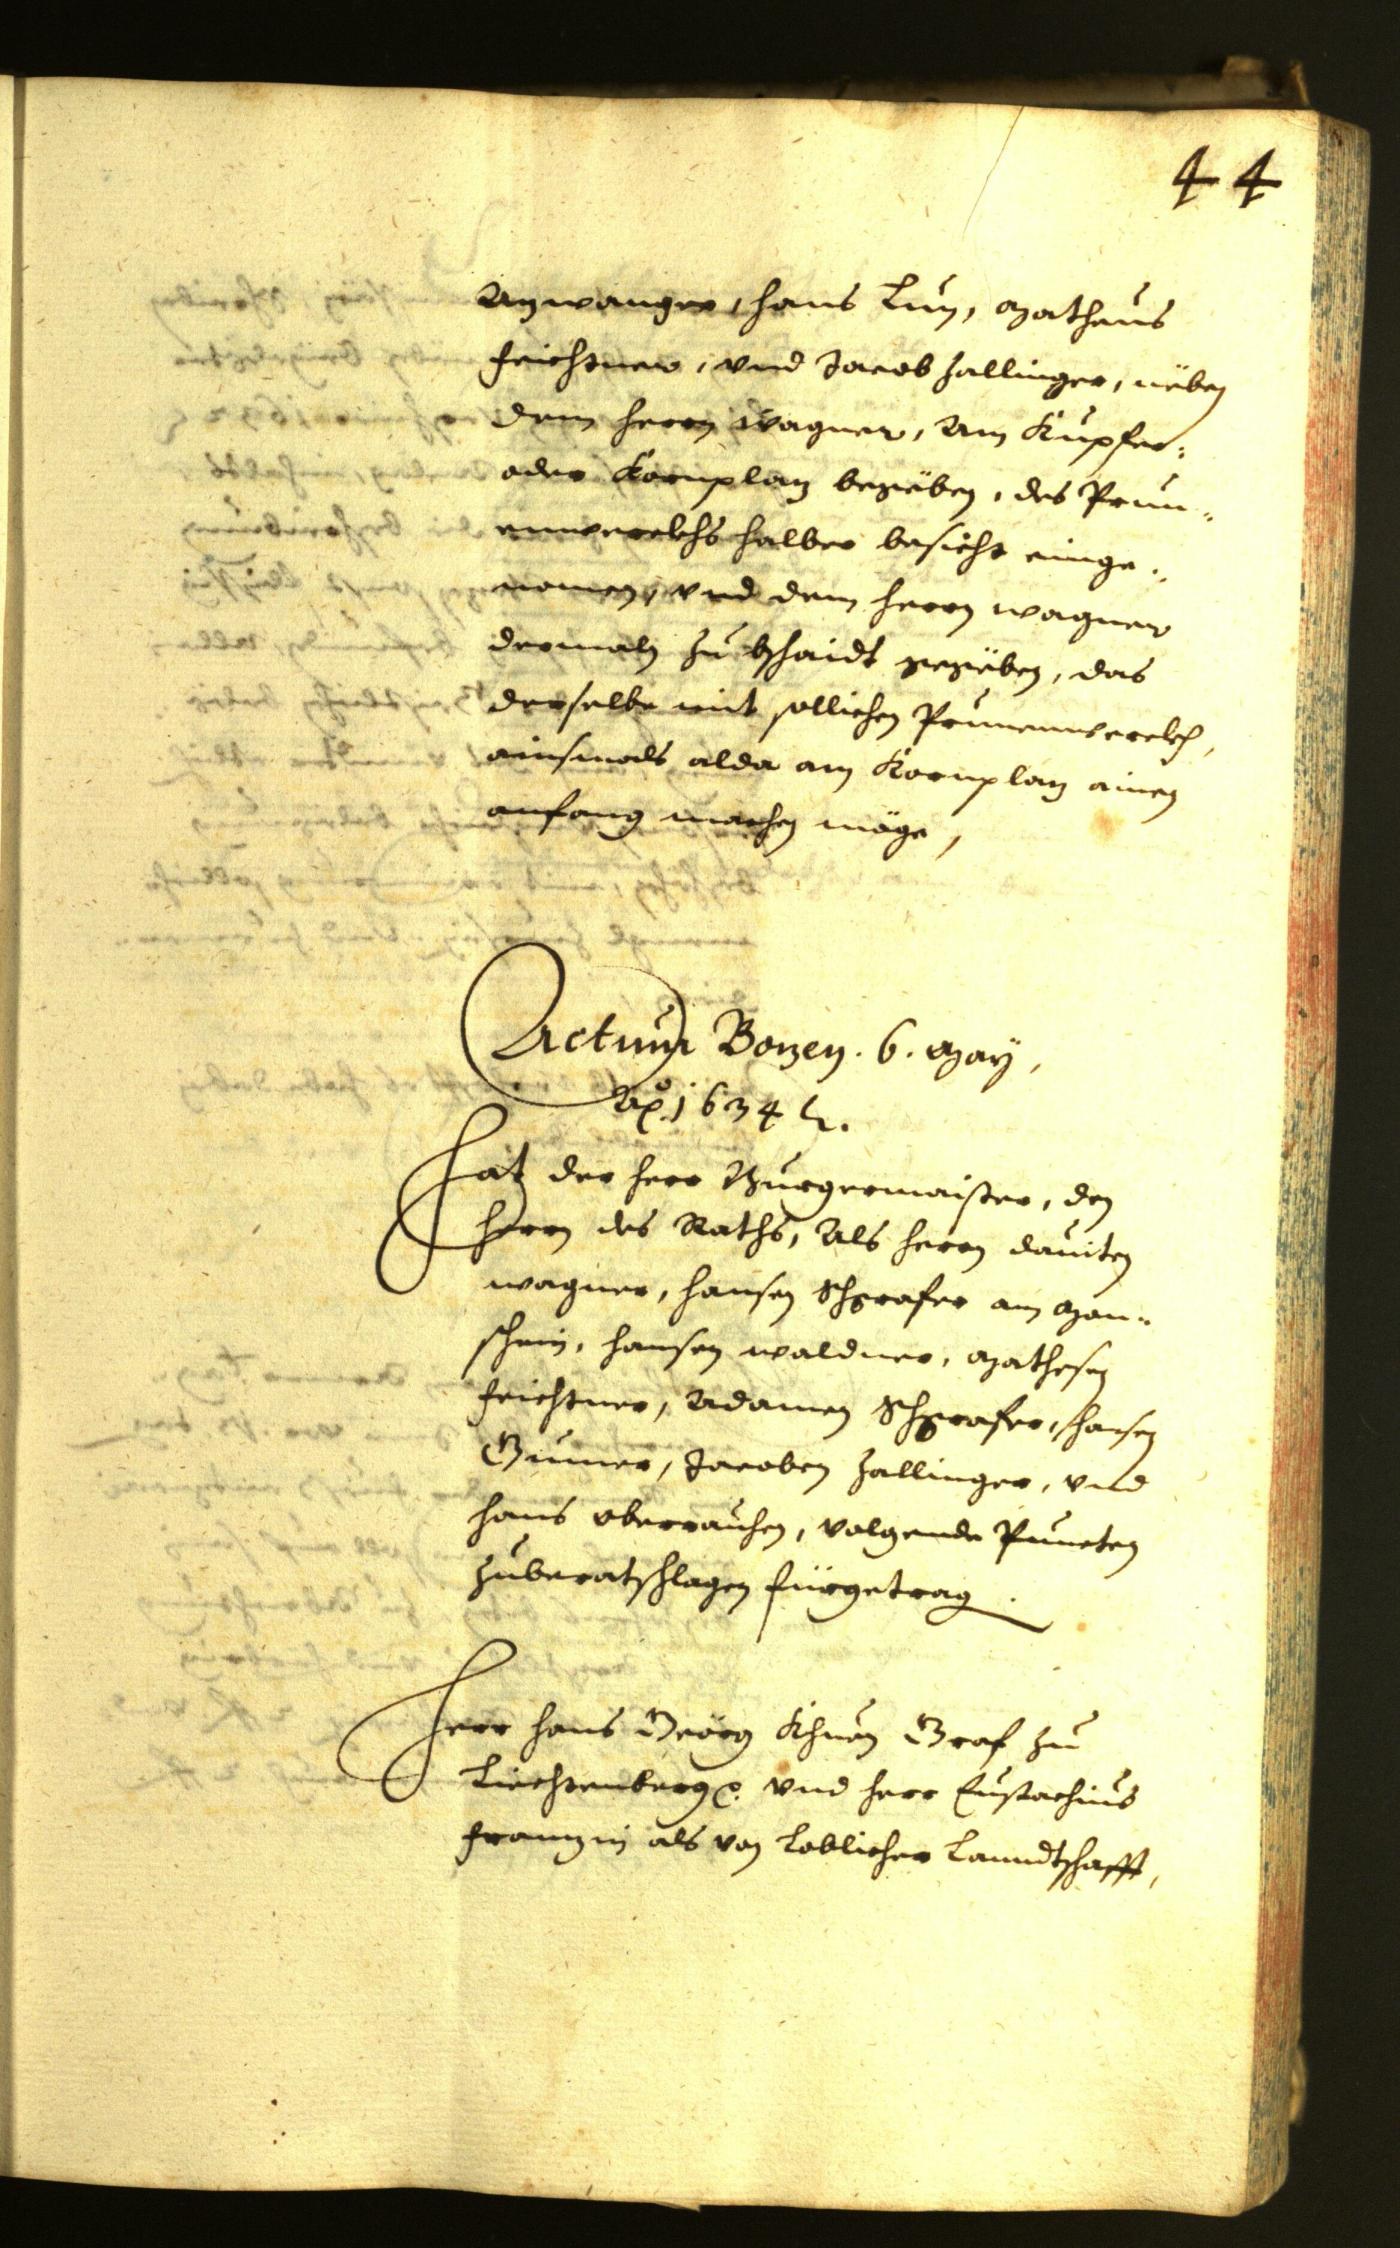 44
Anwanger, Hans Lun, Matheus
Feichtner, vnd Jacob Zallinger, nëben
dem herrn Wagner, Am Kupfer-
oder Kornplaz begëben, des Prun-
enwerckhs halber besicht einge-
nomen, vnd dem herrn Wagner
dermaln zu bschaidt gegëben, das
derselbe mit sollichen Prunenwerckh,
ainsmals alda am Kornplaz ainen
anfang machen möge,
Actum Bozen. 6. May,
Ao. 1634 &c.
Hat der herr Burgermaister, den
herrn des Raths, Als herrn Dauiten
Wagner, Hansen Schgrafer am Man-
schein, Hansen Waldner, Mathesen
Feichtner, Adamen Schgrafer, Hansen
Gumer, Jacoben Zallinger, vnd
Hans Oberrauhen, volgende Puncten
zuberatschlagen fürgetrag.
Herr Hans Geörg Khuen Graf zu
Liechtenberg &c. vnd herr Eustachius
Franzin als von Loblicher Lanndtschafft,